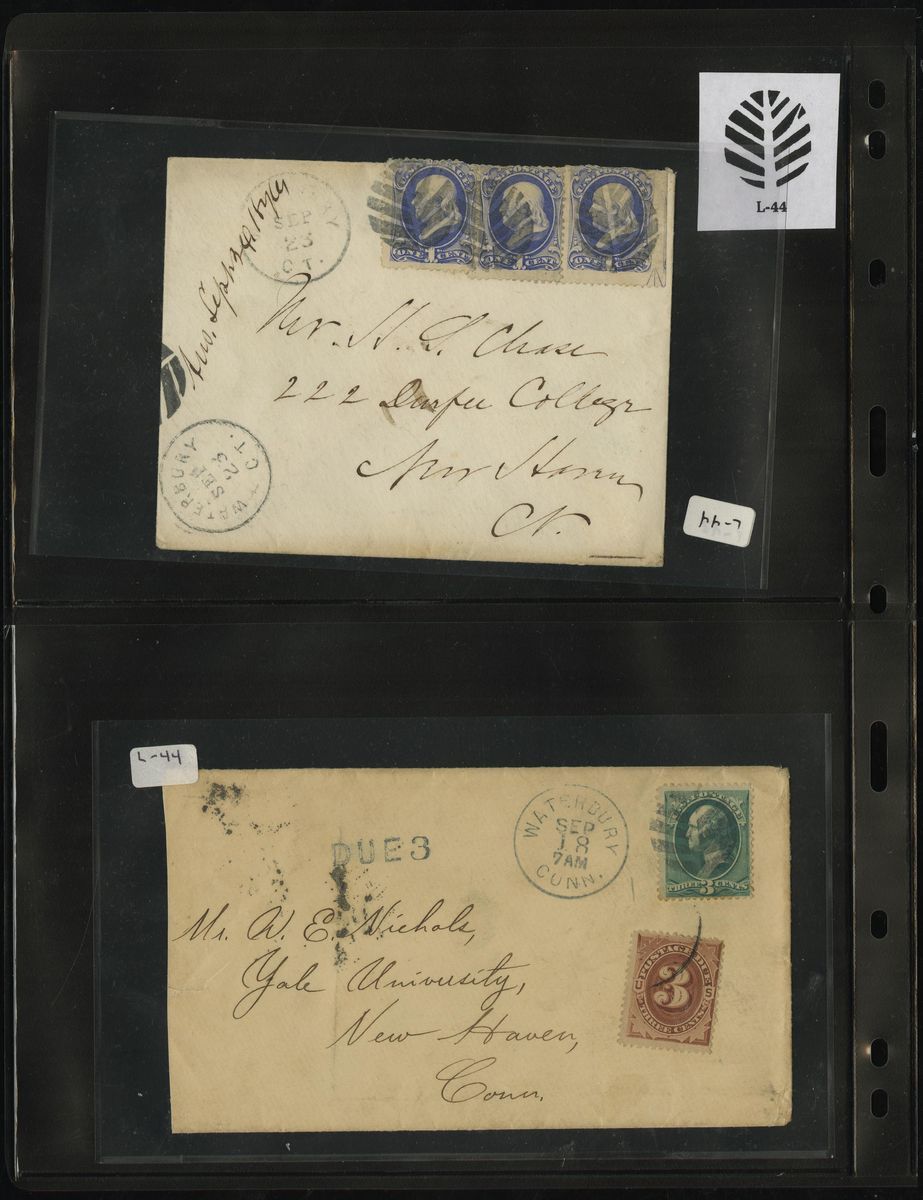 L-44
SEP
23
CT.
U.S. POSTAGE
ONE 1 CENT
ONE 1 CENT
ONE CENT
Ans. Sept
Mr. H. S. Chase
222 Durfee College
New Haven
Ct.
WATERBURY
SEP
23
CT.
L-44
L-44
DUE 3
WATERBURY
SEP
18
7AM
CONN.
U.S. POSTAGE
THREE 3 CENTS
Mr. W. E. Nichols,
Yale University,
New Haven,
Conn.
POSTAGE DUE
U 3 S
THREE CENTS